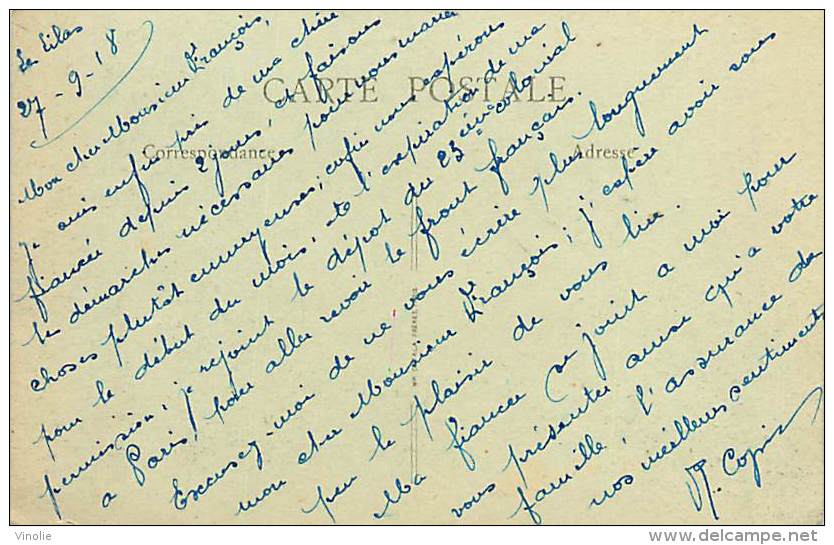 Les Lilas
27-9-18
Mon cher Monsieur François,
Je suis enfin près de ma chère
fiancée depuis 2 jours, et faisons
les démarches nécessaires pour nous marier
choses plutôt ennuyeuses; enfin nous espérons
pour le début du mois, et à l'expiration de ma
permission, je rejoint le dépôt du 23ème colonial
a Paris, pour aller revoir le front français.
Excusez-moi de ne vous écrire plus longuement
mon cher Monsieur François; j'espère avoir sous
peu le plaisir de vous lire.
Ma fiancée se joint a moi pour
vous présenter ainsi qu'a votre
famille, l'assurance de
nos meilleurs sentiments
CARTE POSTALE
Correspondance
Adresse
Vinolie
www.delcampe.net